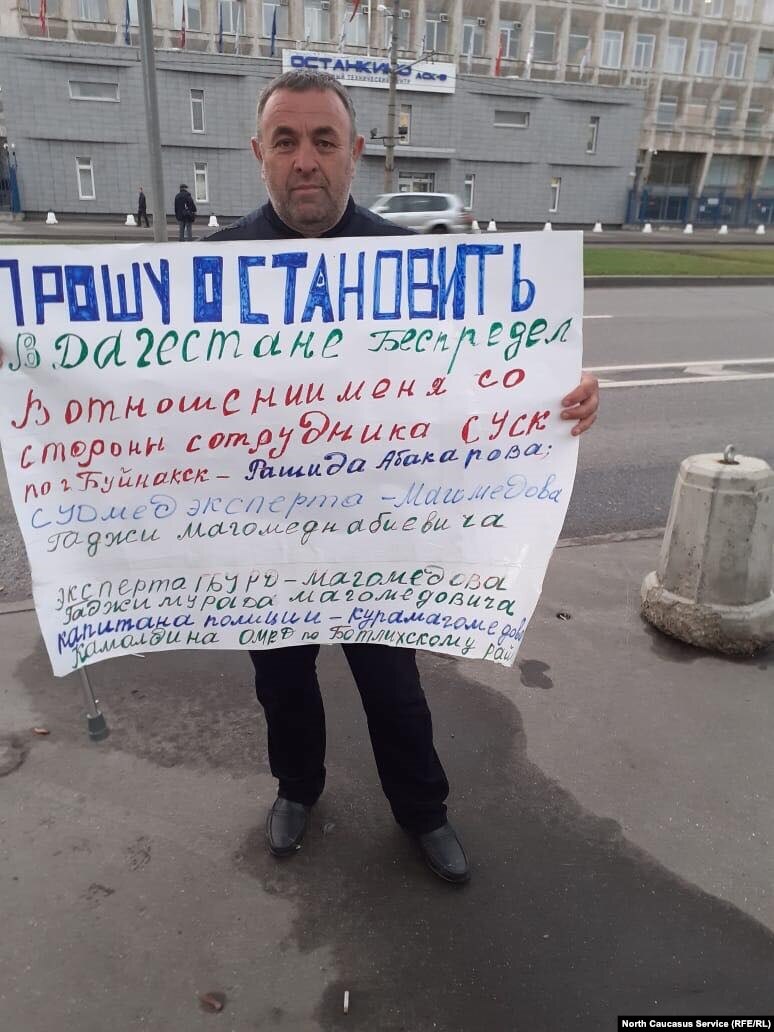 ОСТАНКИНО АСК-3
ТЕХНИЧЕСКИЙ ЦЕНТР
ПРОШУ ОСТАНОВИТЬ
В ДАГЕСТАНЕ Беспредел
В отношении меня со
стороны сотрудника СУСК
по г Буйнакск - Рашида Абакарова;
СУДмед эксперта - Магомедова
Гаджи Магомеднабиевича
эксперта ГБУ РД - Магомедова
Гаджимурада Магомедовича
капитана полиции - Курамагомедова
Камалдина ОМВД по Ботлихскому рай
North Caucasus Service (RFE/RL)